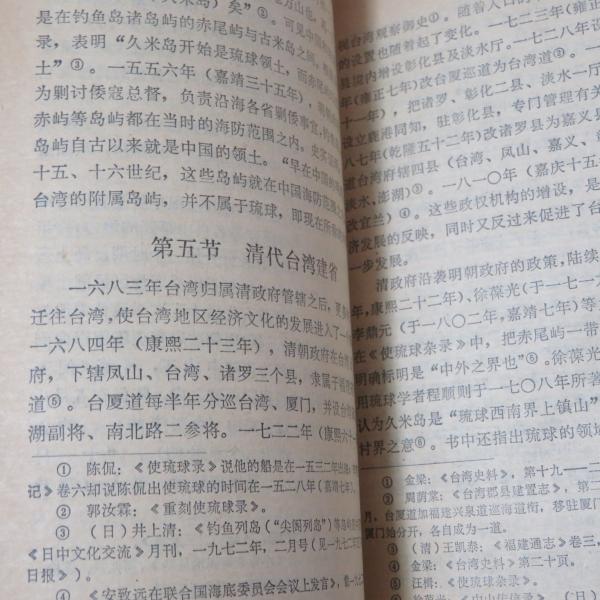 是在钓鱼岛诸岛屿的赤尾屿与古米岛之间
录，表明“久米岛开始是琉球领土，而赤尾
土”③。一五五六年（嘉靖三十五年），
为剿讨倭寇总督，负责沿海各省剿倭事宜，
赤屿等岛屿都在当时的海防范围之内。史实
岛屿自古以来就是中国的领土。“早在
十五、十六世纪，这些岛屿就在中国海防范围之
台湾的附属岛屿，并不属于琉球，即现在所
第五节 清代台湾建省
一六八三年台湾归属清政府管辖之后，更
迁往台湾，使台湾地区经济文化的发展进入了一
一六八四年（康熙二十三年），清朝政府在台湾
府，下辖凤山、台湾、诸罗三个县，隶属于福建
道⑤。台厦道每半年分巡台湾、厦门，并设台
湖副将、南北路二参将。一七二二年（康熙六十
① 陈侃：《使琉球录》说他的船是在一五三二年
记》卷六却说陈侃出使琉球的时间在一五二八年（嘉靖七年）。
② 郭汝霖：《重刻使琉球录》。
③ （日）井上清：《钓鱼列岛（“尖阁列岛”）等岛
《日中文化交流》月刊，一九七二年，二月号（见一九七二年
日报》）。
④ 《安致远在联合国海底委员会会议上发言》，
视台湾观察御史⑥。随着人口的
的设置也随着起了变化。一七二三年（雍正
县境内增设彰化县及淡水厅。一七二
年（雍正七年）改台厦巡道为台湾道⑧。
十一年），把诸罗、彰化二县、淡水一厅
设立鹿港同知，驻彰化县，专门管理有关
八七年（乾隆五十二年）改诸罗县为嘉义县
道台湾府辖四县（台湾、凤山、嘉义、彰
淡水，澎湖）③。一八一〇年（嘉庆十五
改宜兰）④。这些政权机构的增设，是
济发展的反映，同时又反过来促进了台
一步发展。
清政府沿袭明朝政府的政策，陆续
年，康熙二十二年）、徐葆光（于一七一
李鼎元（于一八〇二年，嘉靖七年）等
在《使琉球杂录》中，把赤尾屿一带
明确标明是“中外之界也”⑤。徐葆光
用琉球学者程顺则于一七〇八年所著
认为久米岛是“琉球西南界上镇山”
村界之意⑥。书中还指出琉球的领域
① 金梁：《台湾史料》，第十九—二
② 周荫棠：《台湾郡县建置志》，第二
月，台厦道加福建兴泉道巡海道衔，移驻厦门
厦门始分开，各自成为一道。
③ （清）王凯泰：《福建通志》卷三，
④ 金梁：《台湾史料》第二十页。
⑤ 汪楫：《使琉球杂录》。
⑥ 徐葆光：《中山传信录》